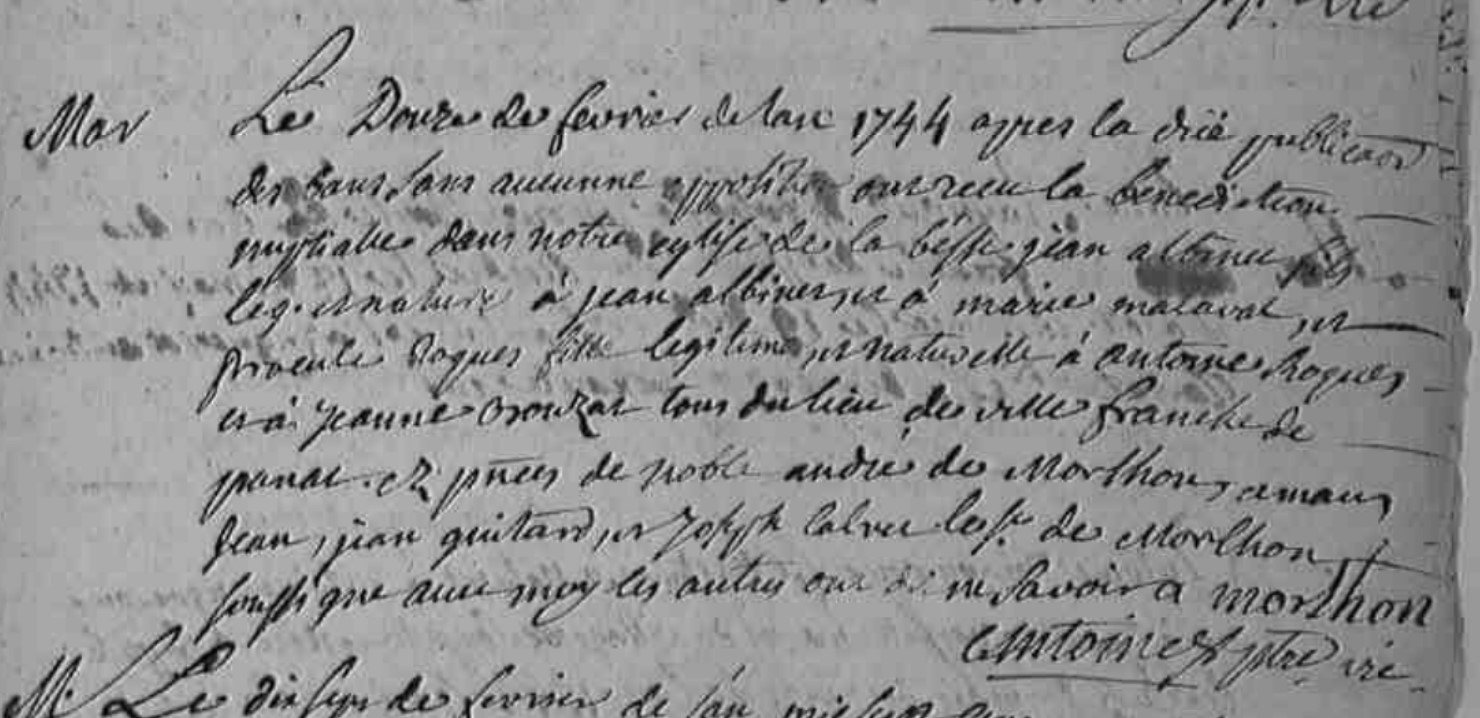 Mar Le Douze de fevrier de lan 1744 apres la due publicaon
des bans sans aucunne oppositio ont receu la benediction
nuptialle dans notre eglise de la besse jean albinet fils
leg. et naturel à jean albinet, et à marie malaval, et
procule Roques fille legitime, et naturelle à antoine Roques
et à jeanne tous du lieu de ville franche de
panat. ez pnces de noble andré de Morlhon, amans
jean, jean guitard, et Joseph Calvet le sr. de Morlhon
soussigné avec moy les autres ont dit ne savoir morlhon
Antoine ptre vre
M. Le dix sept de fevrier de l'an mil sept cens